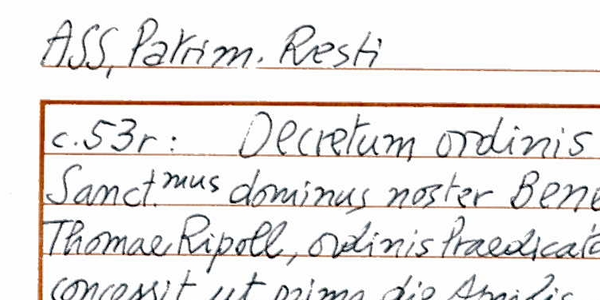 ASS, Patrim. Resti
c.53r: Decretum ordinis
Sanct.mus dominus noster Bene
Thomae Ripoll, ordinis Praedicato
concessit ut prima die Aprilis